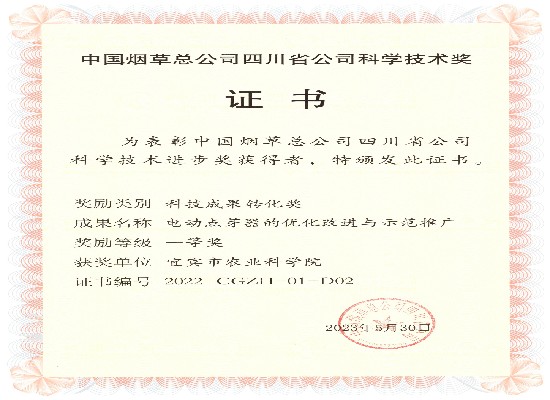 中国烟草总公司四川省公司科学技术奖
证 书
为表彰中国烟草总公司四川省公司
科学技术进步奖获得者，特颁发此证书。
奖励类别 科技成果转化奖
成果名称 电动点芽器的优化改进与示范推广
奖励等级 一等奖
获奖单位 宜宾市农业科学院
证书编号 2022-CGZH-01-D02
2023年5月30日